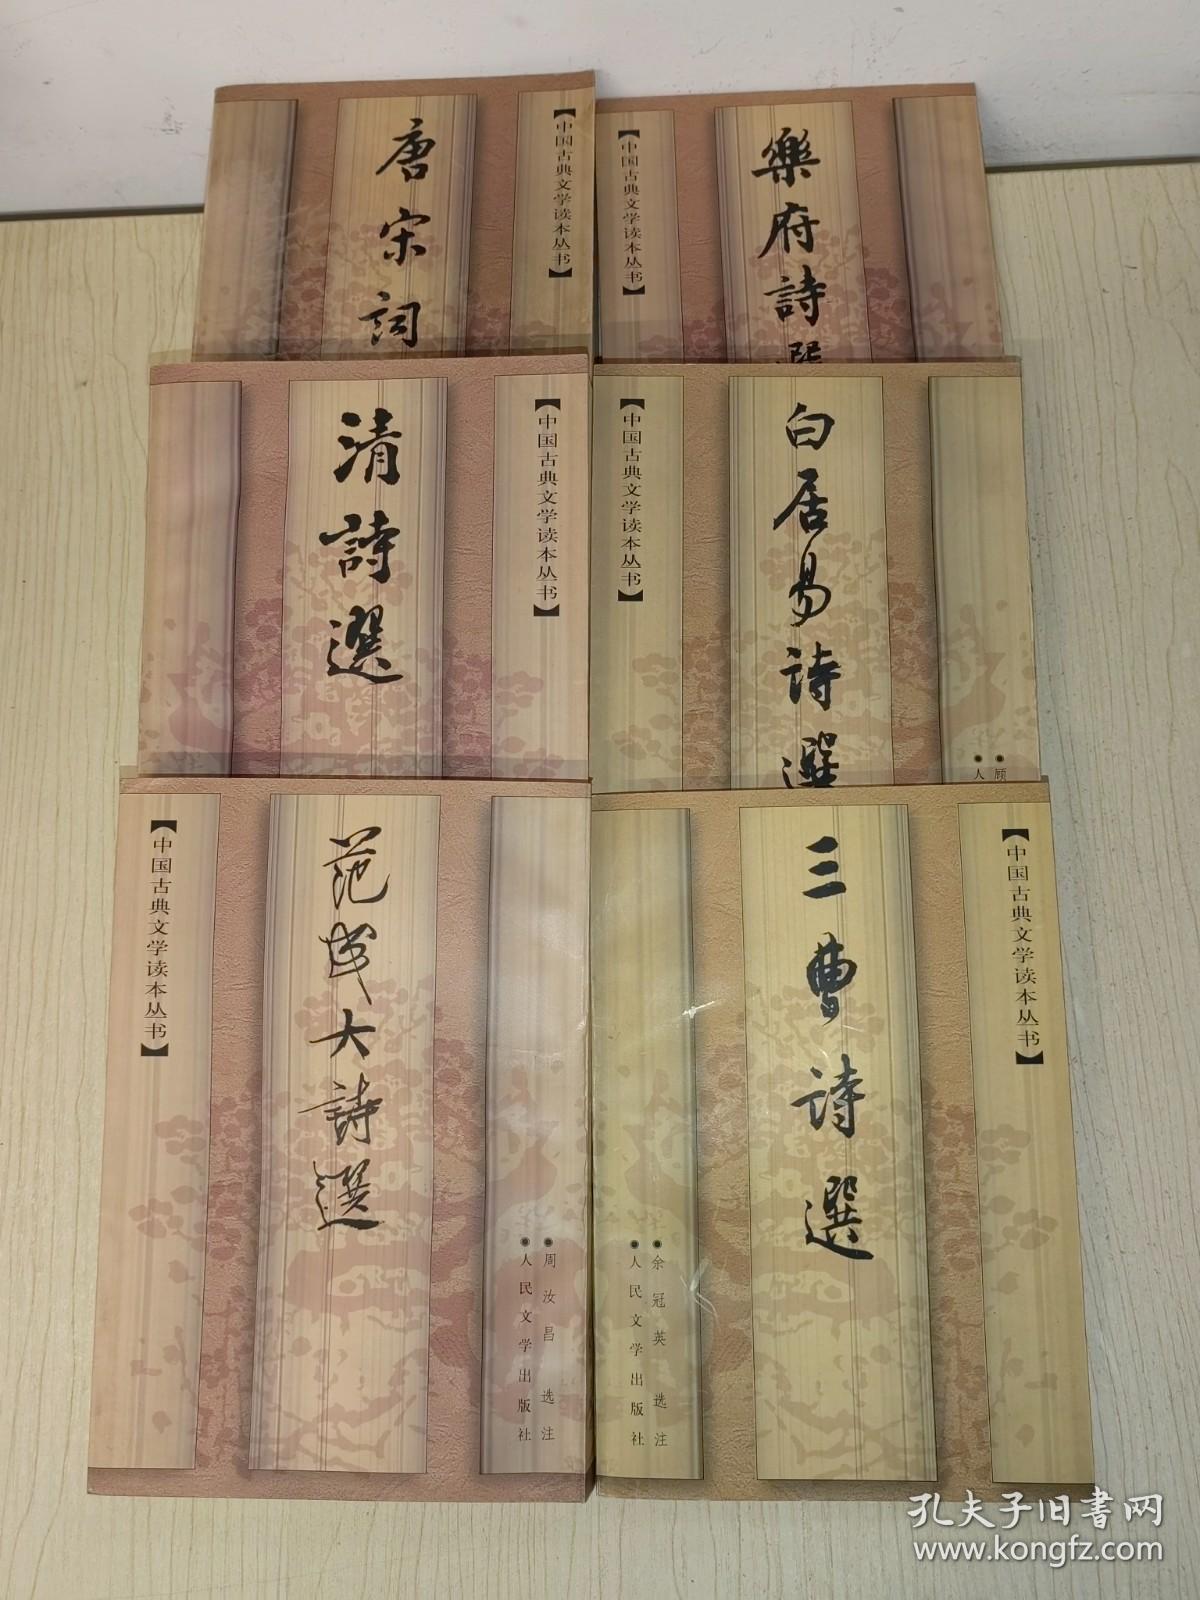 唐宋词
【中国古典文学读本丛书】
樂府詩選
【中国古典文学读本丛书】
清詩選
【中国古典文学读本丛书】
白居易诗選
【中国古典文学读本丛书】
●顾
●人
范成大詩選
【中国古典文学读本丛书】
●周汝昌 选注
●人民文学出版社
三曹诗選
【中国古典文学读本丛书】
●余冠英 选注
●人民文学出版社
孔夫子旧书网
www.kongfz.com